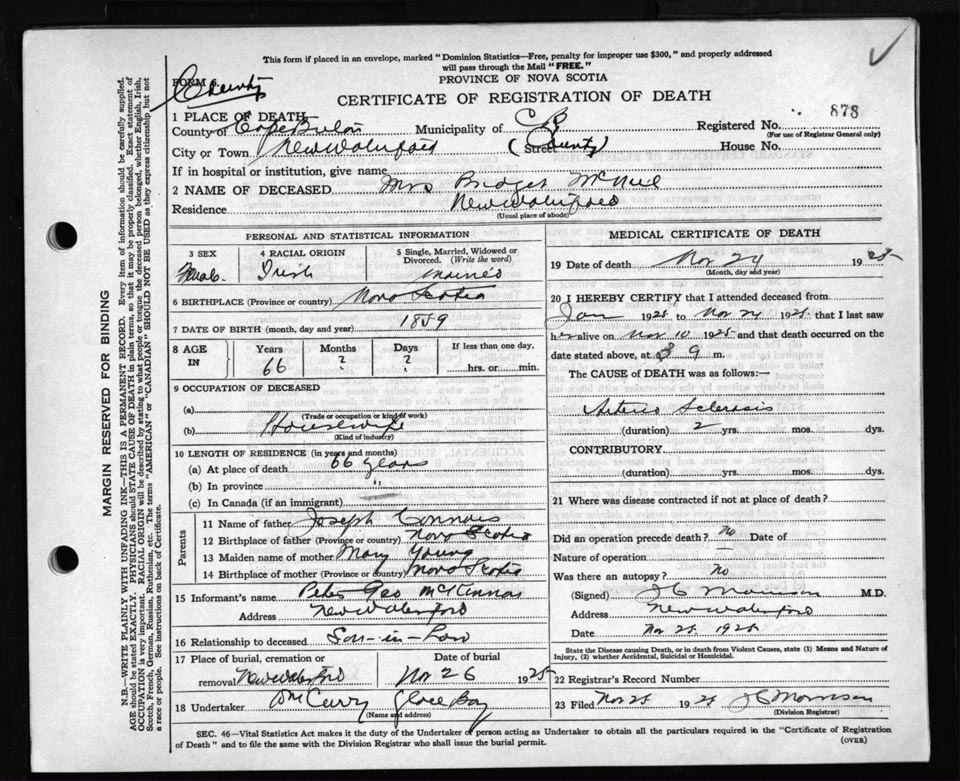 This form if placed in an envelope, marked "Dominion Statistics—Free, penalty for improper use $300," and properly addressed
will pass through the Mail "FREE."
PROVINCE OF NOVA SCOTIA
FORM 6
County
CERTIFICATE OF REGISTRATION OF DEATH
873
1 PLACE OF DEATH
County of Cape Breton Municipality of C B Registered No.
(For use of Registrar General only)
City or Town New Waterford (Street County) House No.
If in hospital or institution, give name
2 NAME OF DECEASED Mrs Bridget McNeil
Residence New Waterford
(Usual place of abode)
PERSONAL AND STATISTICAL INFORMATION
3 SEX 4 RACIAL ORIGIN 5 Single, Married, Widowed or
Divorced. (Write the word)
Female Irish Married
6 BIRTHPLACE (Province or country) Nova Scotia
7 DATE OF BIRTH (month, day and year) 1859
8 AGE IN Years Months Days If less than one day,
66 ? ? hrs. or min.
9 OCCUPATION OF DECEASED
(a)
(Trade or occupation or kind of work)
(b) Housewife
(Kind of industry)
10 LENGTH OF RESIDENCE (in years and months)
(a) At place of death 66 years
(b) In province "
(c) In Canada (if an immigrant)
Parents
11 Name of father Joseph Connors
12 Birthplace of father (Province or country) Nova Scotia
13 Maiden name of mother Mary Young
14 Birthplace of mother (Province or country) Nova Scotia
15 Informant's name Peter Geo McKinnon
Address New Waterford
16 Relationship to deceased Son-in-Law
17 Place of burial, cremation or Date of burial
removal New Waterford Nov 26 1925
18 Undertaker McCurry Glace Bay
(Name and address)
MEDICAL CERTIFICATE OF DEATH
19 Date of death Nov 24 1925
(Month, day and year)
20 I HEREBY CERTIFY that I attended deceased from
Jan 1925 to Nov 24 1925 that I last saw
her alive on Nov 10 1925 and that death occurred on
date stated above, at 9 m.
The CAUSE of DEATH was as follows:—
Arterio Sclerosis
(duration) 2 yrs. mos. dys.
CONTRIBUTORY
(duration) yrs. mos. dys.
21 Where was disease contracted if not at place of death?
Did an operation precede death? No Date of
Nature of operation —
Was there an autopsy? No
(Signed) J C Morrison M.D.
Address New Waterford
Date Nov 25 1925
State the Disease causing Death, or in death from Violent Causes, state (1) Means and Nature of
Injury, (2) whether Accidental, Suicidal or Homicidal.
22 Registrar's Record Number
23 Filed Nov 25 1925 J C Morrison
(Division Registrar)
SEC. 46—Vital Statistics Act makes it the duty of the Undertaker or person acting as Undertaker to obtain all the particulars required in the "Certificate of Registration
of Death" and to file the same with the Division Registrar who shall issue the burial permit.
(OVER)
MARGIN RESERVED FOR BINDING
N.B.—WRITE PLAINLY WITH UNFADING INK—THIS IS A PERMANENT RECORD. Every item of information should be carefully supplied.
AGE should be stated EXACTLY. PHYSICIANS should STATE CAUSE OF DEATH in plain terms, so that it may be properly classified. Exact statement of
OCCUPATION is very important. RACIAL ORIGIN will be described by stating to what people or tongue the deceased person belonged, whether English, Irish,
Scotch, French, German, Russian, Ruthenian, etc. The terms "AMERICAN" or "CANADIAN" SHOULD NOT BE USED as they express citizenship but not
a race or people. See instructions on back of Certificate.